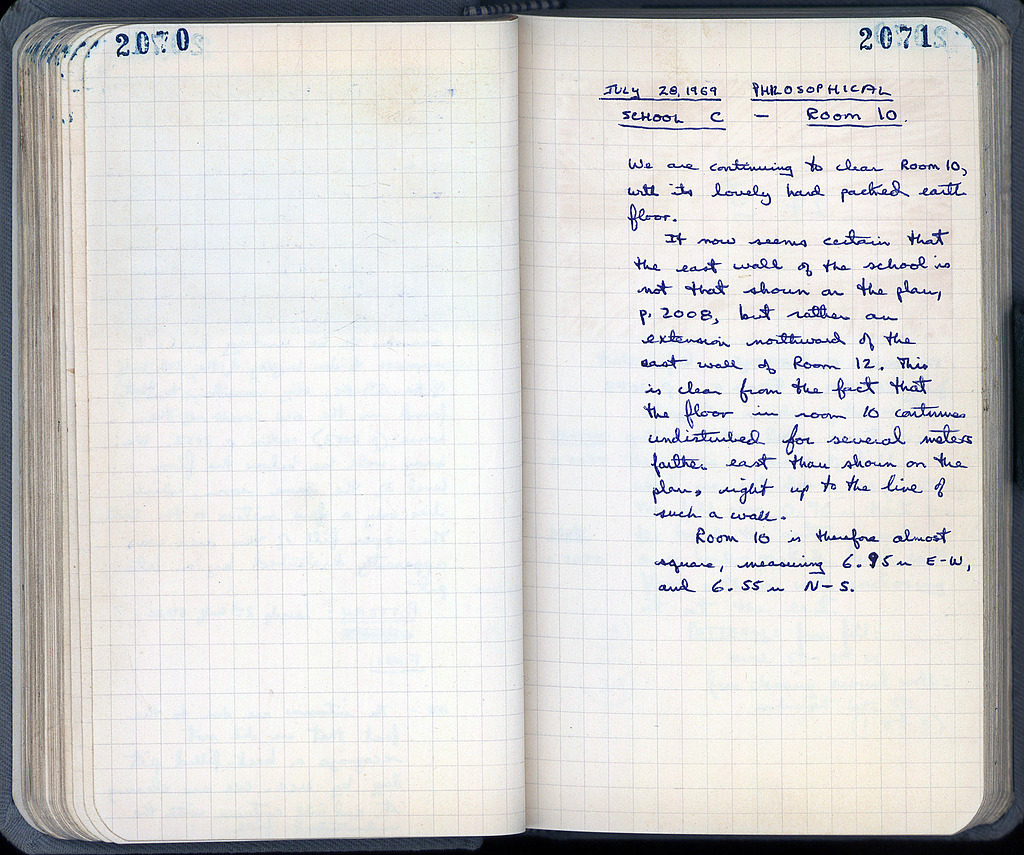 2070
2071
JULY 28, 1969 PHILOSOPHICAL
SCHOOL C — ROOM 10.
We are continuing to clear Room 10,
with its lovely hard packed earth
floor.
It now seems certain that
the east wall of the school is
not that shown on the plan,
p. 2008, but rather an
extension northward of the
east wall of Room 12. This
is clear from the fact that
the floor in room 10 continues
undisturbed for several meters
farther east than shown on the
plan, right up to the line of
such a wall.
Room 10 is therefore almost
square, measuring 6.95 m E-W,
and 6.55 m N-S.